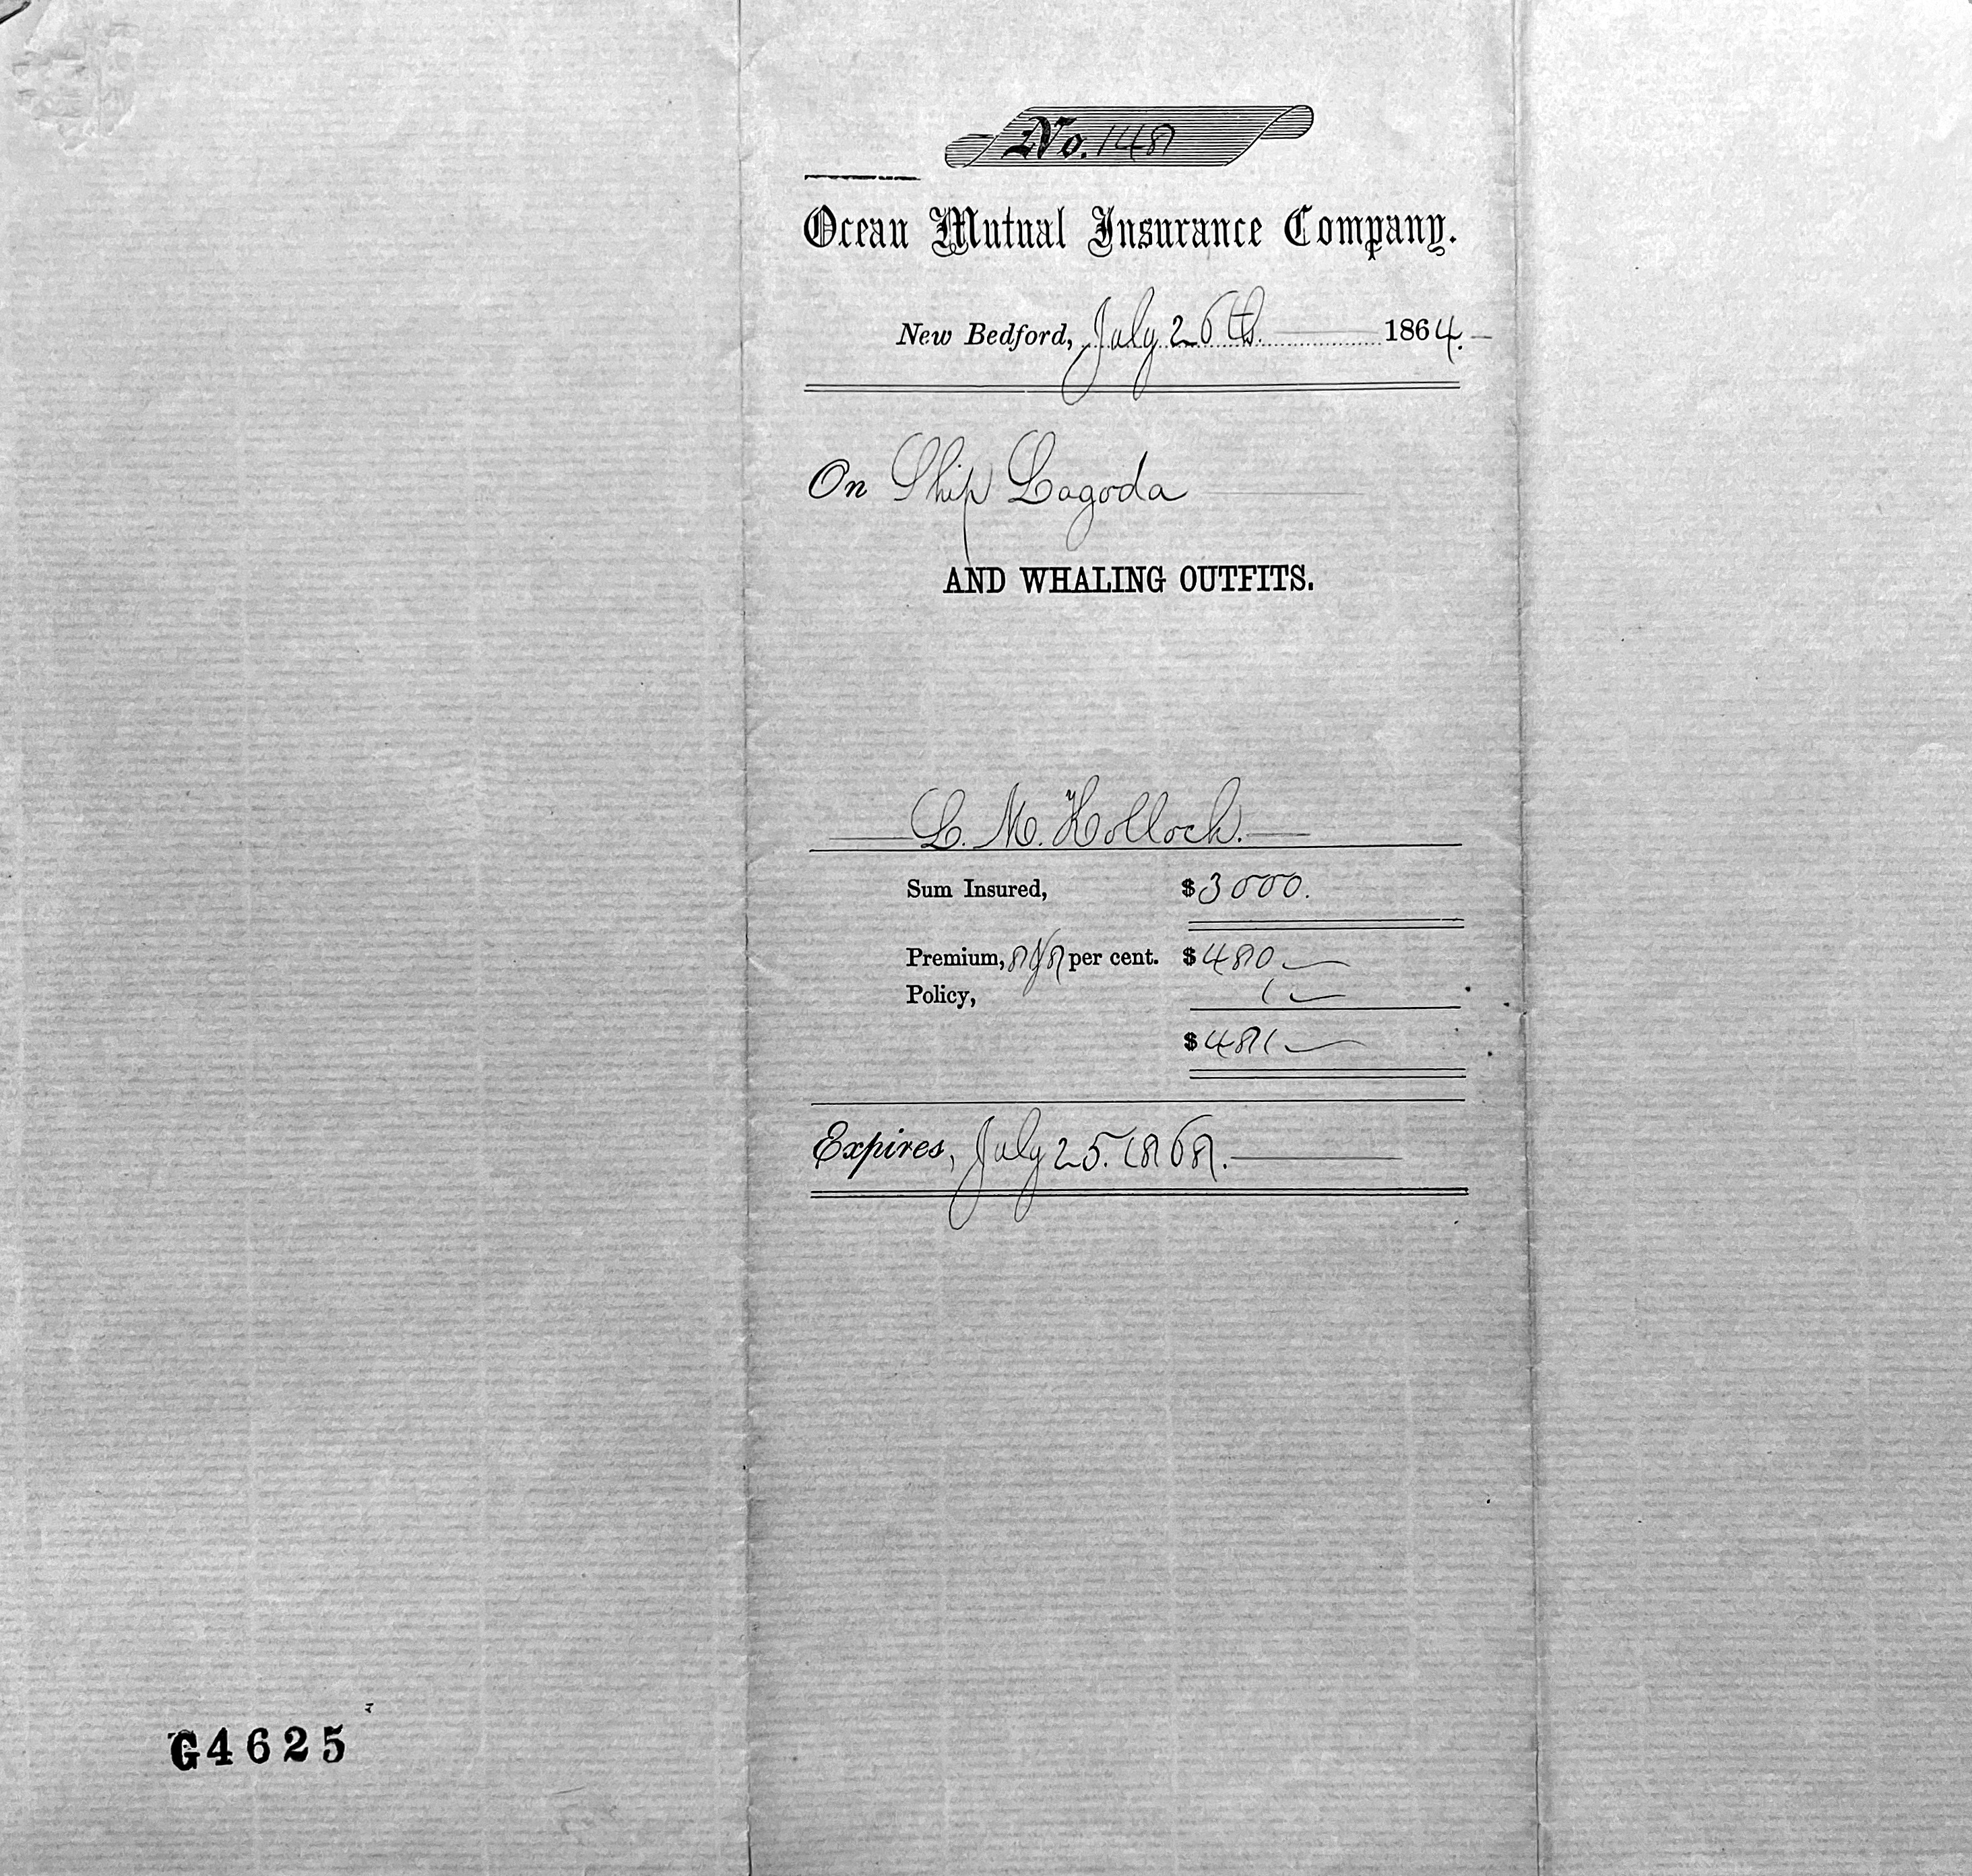 No. 148
Ocean Mutual Insurance Company.
New Bedford, July 26th. 1864.
On Ship Lagoda
AND WHALING OUTFITS.
L. M. Kollock.
Sum Insured, $3000.
Premium, 8/8 per cent. $480
Policy, 1
$481
Expires, July 25. 1868.
G4625